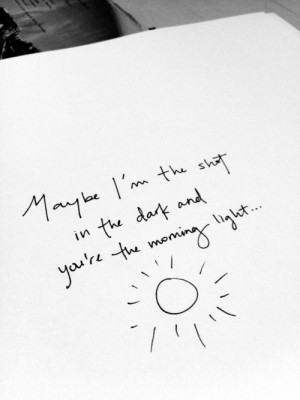 Maybe I'm the shot
in the dark and
you're the morning light...